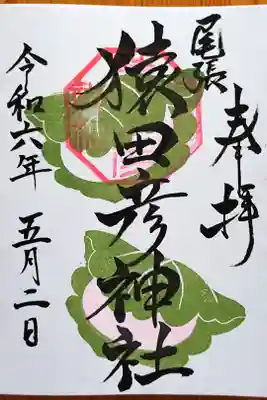 奉拝
尾張
猿田彦神社
令和六年
五月二日